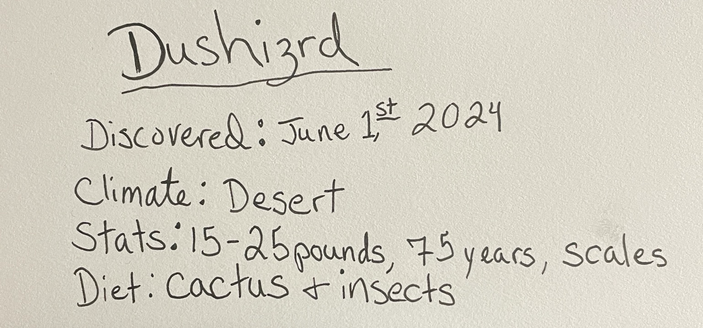 Dushizrd
Discovered: June 1st, 2024
Climate: Desert
Stats: 15-25 pounds, 75 years, scales
Diet: Cactus + insects